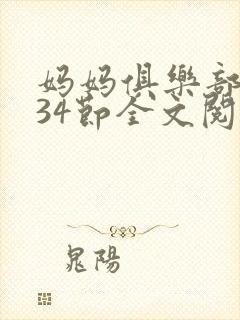 妈妈俱樂部
34節全文閱
晁陽